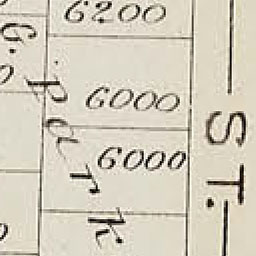 6200
G. Park
6000
6000
ST.